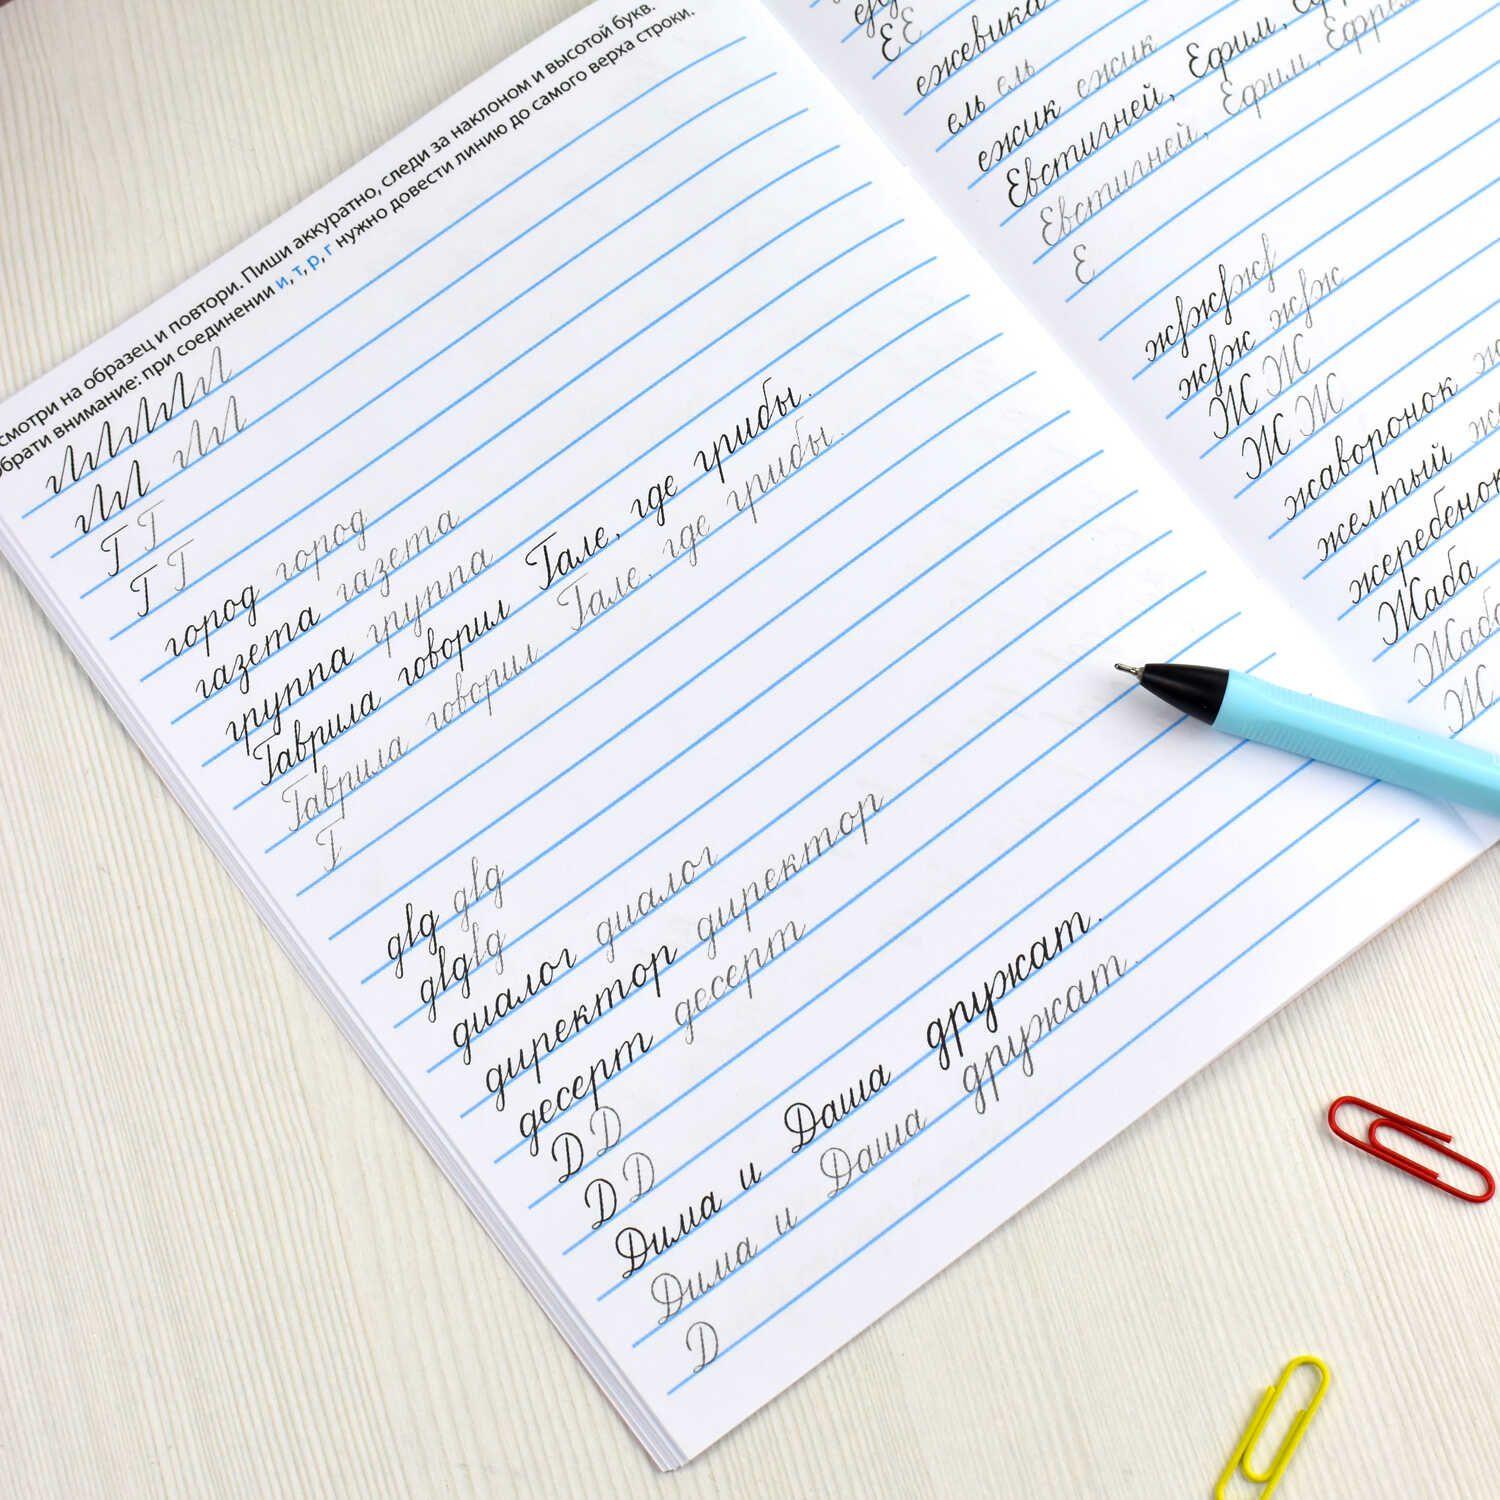 смотри на образец и повтори. Пиши аккуратно, следи за наклоном и высотой букв.
обрати внимание: при соединении и, т, р, г нужно довести линию до самого верха строки.
Г Г
Г Г
город город
газета газета
группа группа
Гаврила говорил Гале, где грибы.
Гаврила говорил Гале, где грибы.
Г
д д д д
д д д
диалог диалог
директор директор
десерт десерт
Д Д
Д Д
Дима и Даша дружат.
Дима и Даша дружат.
Д
Е Е
ежевика
ель ель
ежик ежик
Евстигней, Ефим,
Евстигней, Ефим,
Е
ж ж ж
ж ж ж ж
Ж Ж
Ж Ж
жаворонок
желтый
жеребенок
Жаба
Жаба
Ж